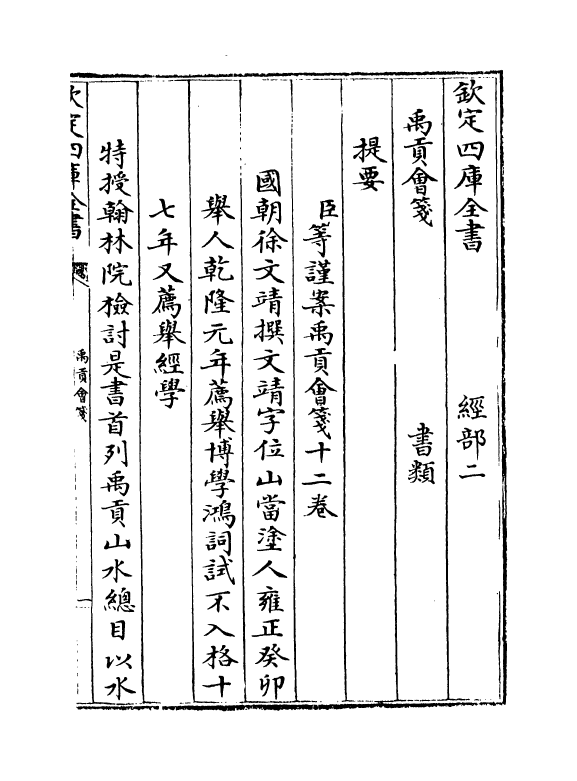 欽定四庫全書 經部二
禹貢會箋 書類
提要
臣等謹案禹貢會箋十二卷
國朝徐文靖撰文靖字位山當塗人雍正癸卯
舉人乾隆元年薦舉博學鴻詞試不入格十
七年又薦舉經學
特授翰林院檢討是書首列禹貢山水總目以水
欽定四庫全書 禹貢會箋 一